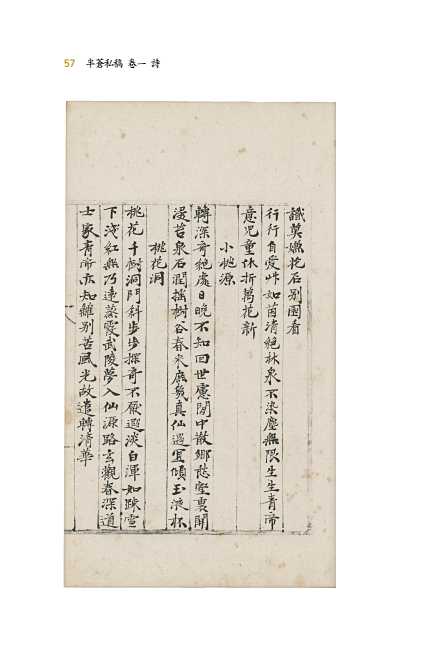 57 半蒼私稿 卷一 詩
識莫嫌花石別園看
行行自愛草如茵清絕林泉不染塵無限生生青帝
意兒童休折萬花新
小桃源
轉深奇絕處日晚不知回世慮閒中散鄉愁壑裏開
漫苔泉石潤搖樹谷春來庶幾真仙過宜傾玉液杯
桃花洞
桃花千樹洞門斜步步探奇不厭遐淡白渾如踈雪
下淺紅無乃遠蒸霞武陵夢入仙源路玄觀春深道
士家青帝亦知離別苦風光故遣轉清華